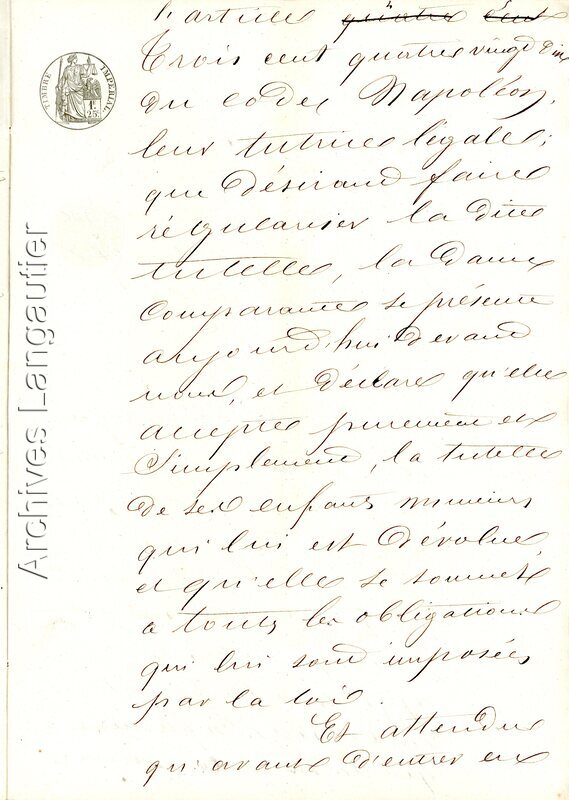 l'article quatre cent
Trois cent quatre vingt dix
du code Napoléon,
leur tutrice légale;
que désirant faire
régulariser la dite
tutelle, la Dame
comparante se présente
aujourd'hui devant
nous, et déclare qu'elle
accepte purement et
Simplement, la tutelle
de ses enfants mineurs
qui lui est dévolue,
et qu'elle se soumet
a toutes les obligations
qui lui sont imposées
par la loi.
Et attendu
qu'avant d'entrer en
TIMBRE IMPERIAL
1F.
25c.
Archives Langautier